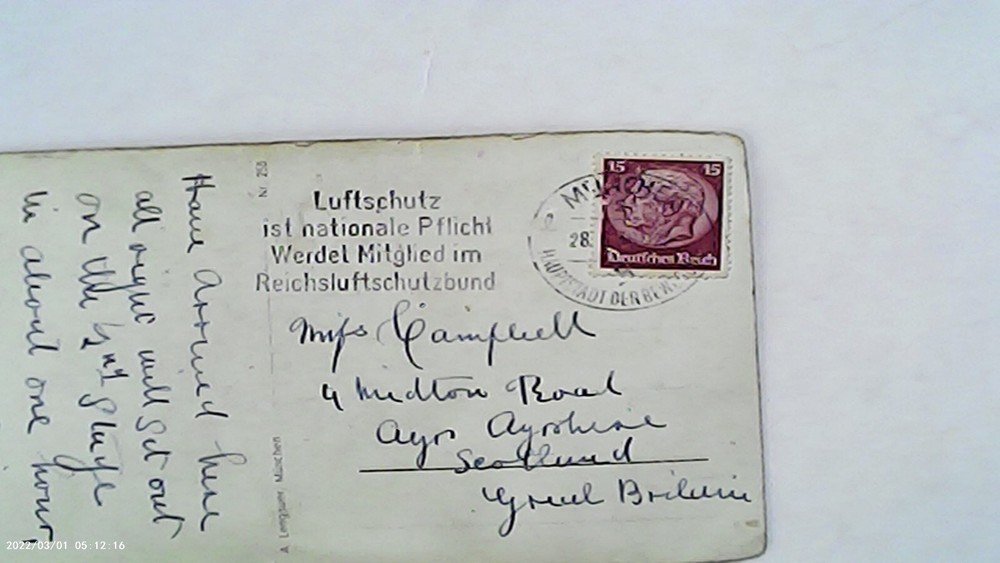 Have arrived here
all right will set out
on the 2nd Stage
in about one hour,
Nr. 250
A. Lengauer, München
Luftschutz
ist nationale Pflicht
Werdet Mitglied im
Reichsluftschutzbund
MÜNCHEN
28.
HAUPTSTADT DER BEWE
15 15
Deutsches Reich
Miss Campbell
4 Midton Road
Ayr Ayrshire
Scotland
Great Britain
2022/03/01 05:12:16